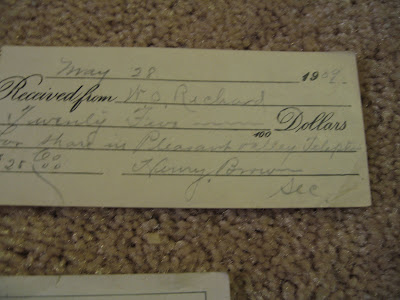 May 28 1909.
Received from W. S. Richard
Twenty Five 100 Dollars
for Share in Pleasant Valley Telepho
$ 25 00 Henry Brown
Sec